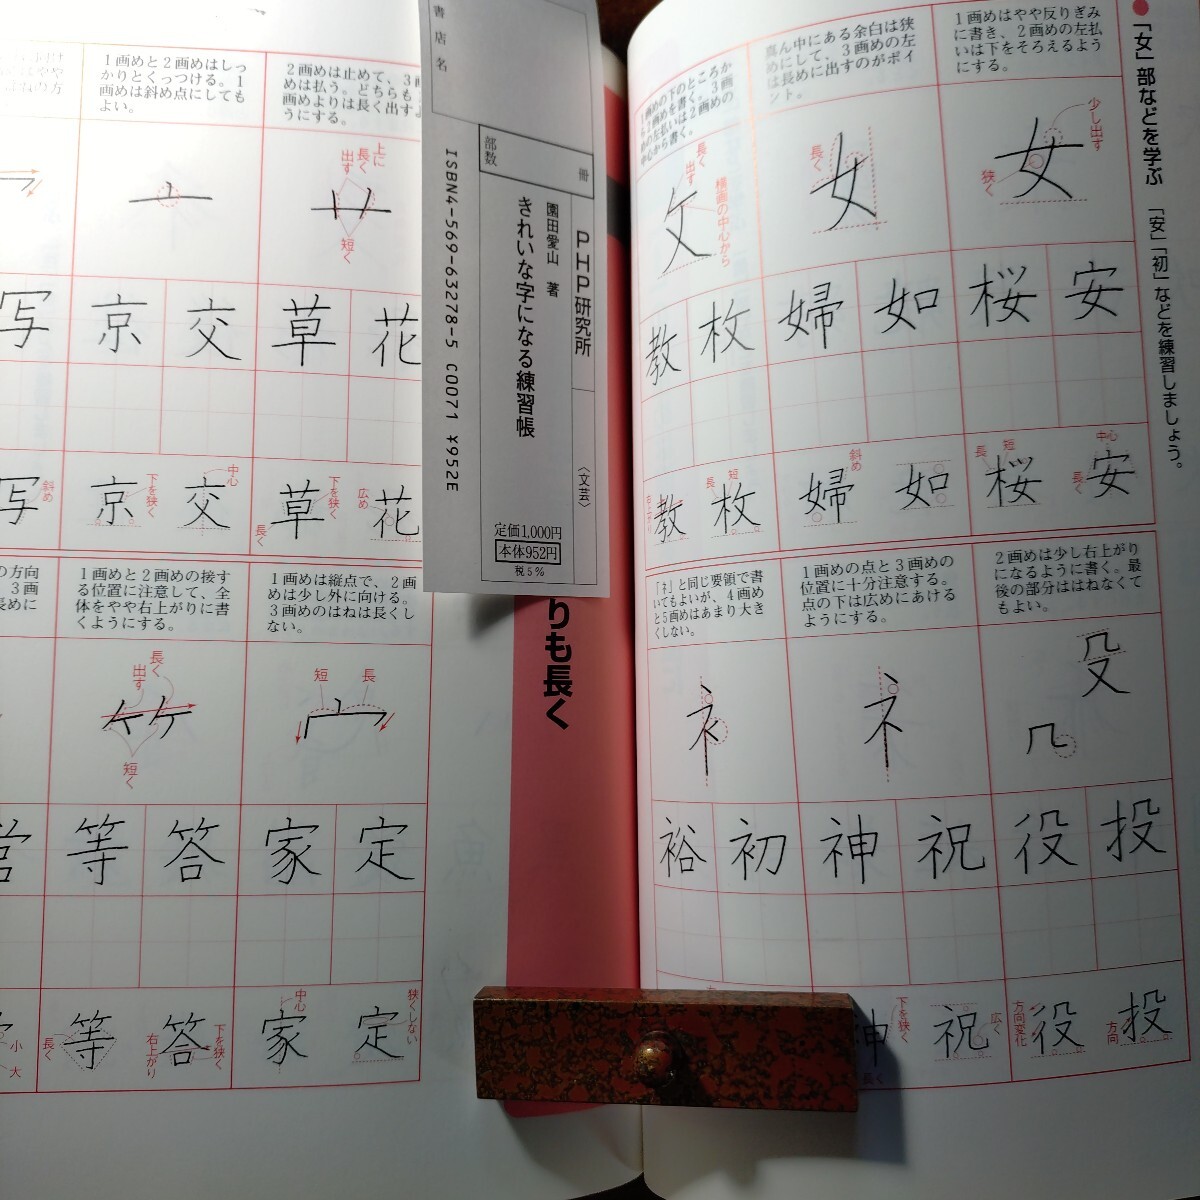 「女」部などを学ぶ 「安」「初」などを練習しましょう。
1画めはやや反りぎみ
に書き、2画めの左払
いは下をそろえるよう
にする。
少し出す
狭く
女
安
桜
中心
長く
安
短
長
桜
真ん中にある余白は狭
めにして、3画めの左
は長めに出すのがポイ
ント。
長く
女
如
婦
如
斜め
婦
1画めの下のところか
ら2画めを書く。3画
めの左払いは2画めの
中心から書く。
長く
出す
横画の中心から
攵
枚
教
短
長
枚
教
2画めは少し右上がり
になるように書く。最
後の部分ははねなくて
もよい。
殳
几
投
役
方向
投
方向変化
役
1画めの点と3画めの
位置に十分注意する。
点の下は広めにあける
ようにする。
礻
祝
神
広く
祝
下を狭く
神
長く
「礻」と同じ要領で書
いてもよいが、4画め
と5画めはあまり大き
くしない。
衤
初
裕
書店名
部数
冊
PHP研究所
園田愛山 著
きれいな字になる練習帳
〈文芸〉
定価1,000円
本体952円
税5%
ISBN4-569-63278-5 C0071 ¥952E
りも長く
2画めは止めて、3画
めは払う。どちらも1
画めよりは長く出すよ
うにする。
上に
長く
出す
短く
艹
花
草
広め
花
下を狭く
長く
草
1画めと2画めはしっ
かりとくっつける。1
画めは斜め点にしても
よい。
亠
交
京
中心
交
下を狭く
京
写
斜め
写
1画めは縦点で、2画
めは少し外に向ける。
3画めのはねは長くし
ない。
短
長
宀
定
家
狭くしない
定
中心
家
1画めと2画めの接す
る位置に注意して、全
体をやや右上がりに書
くようにする。
長く
出す
短く
答
等
下を狭く
右上がり
答
長く
等
の方向
3画
長めに
営
小
大